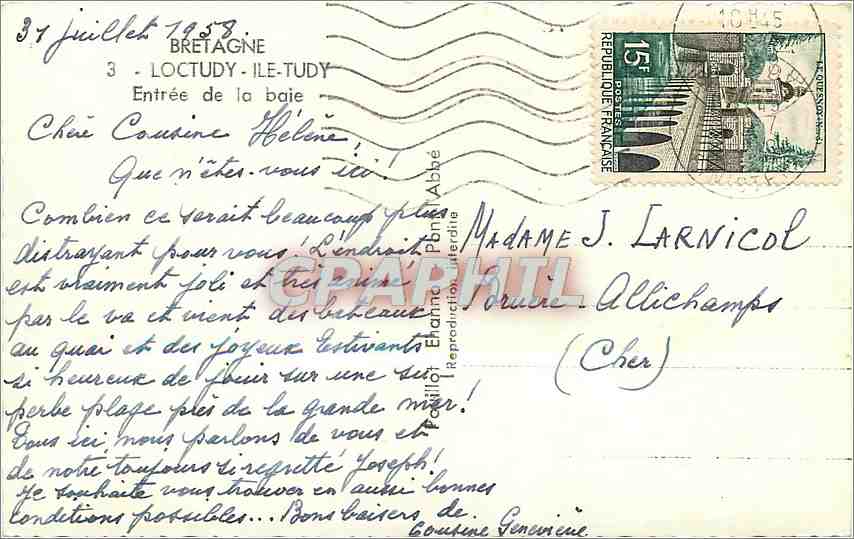 31 juillet 1958.
BRETAGNE
3 - LOCTUDY - ILE-TUDY
Entrée de la baie
Chère Cousine Hélène,
Que n'êtes-vous ici!
Combien ce serait beaucoup plus
distrayant pour vous! L'endroit
est vraiment joli et très animé
par le va et vient des bateaux
au quai et des joyeux Estivants
si heureux de jouir sur une su-
perbe plage près de la grande mer!
Tous ici nous parlons de vous et
de notre toujours si regretté Joseph!
Je souhaite vous trouver en aussi bonnes
conditions possibles... Bons baisers de
Cousine Geneviève
Pouillot Ehanno Pont-l'Abbé
Reproduction interdite
MADAME J. LARNICOL
Bruère-Allichamps
(Cher)
16H45
15F
POSTES
REPUBLIQUE FRANÇAISE
LE QUESNOY (Nord)
CPAPHIL